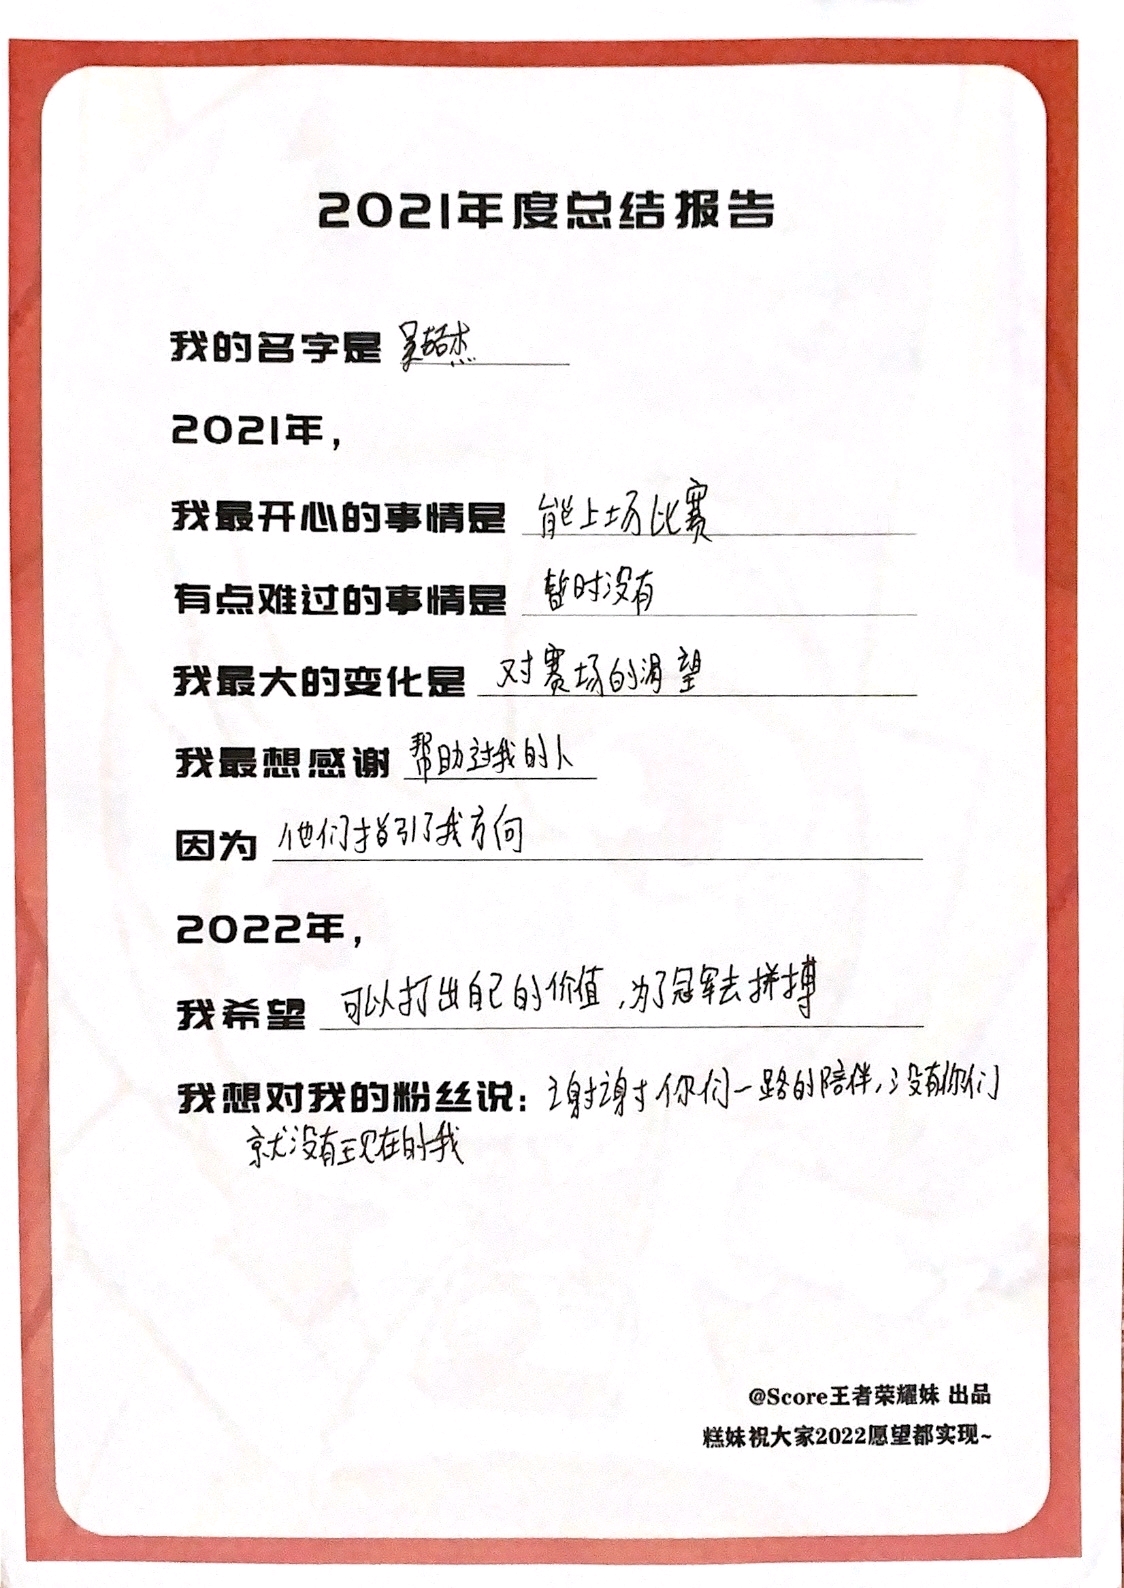 2021年度总结报告
我的名字是 吴喆杰
2021年,
我最开心的事情是 能上场比赛
有点难过的事情是 暂时没有
我最大的变化是 对赛场的渴望
我最想感谢 帮助过我的人
因为 他们指引了我方向
2022年,
我希望 可以打出自己的价值,为了冠军去拼搏
我想对我的粉丝说: 谢谢你们一路的陪伴,没有你们
就没有现在的我
@Score王者荣耀妹 出品
糕妹祝大家2022愿望都实现~